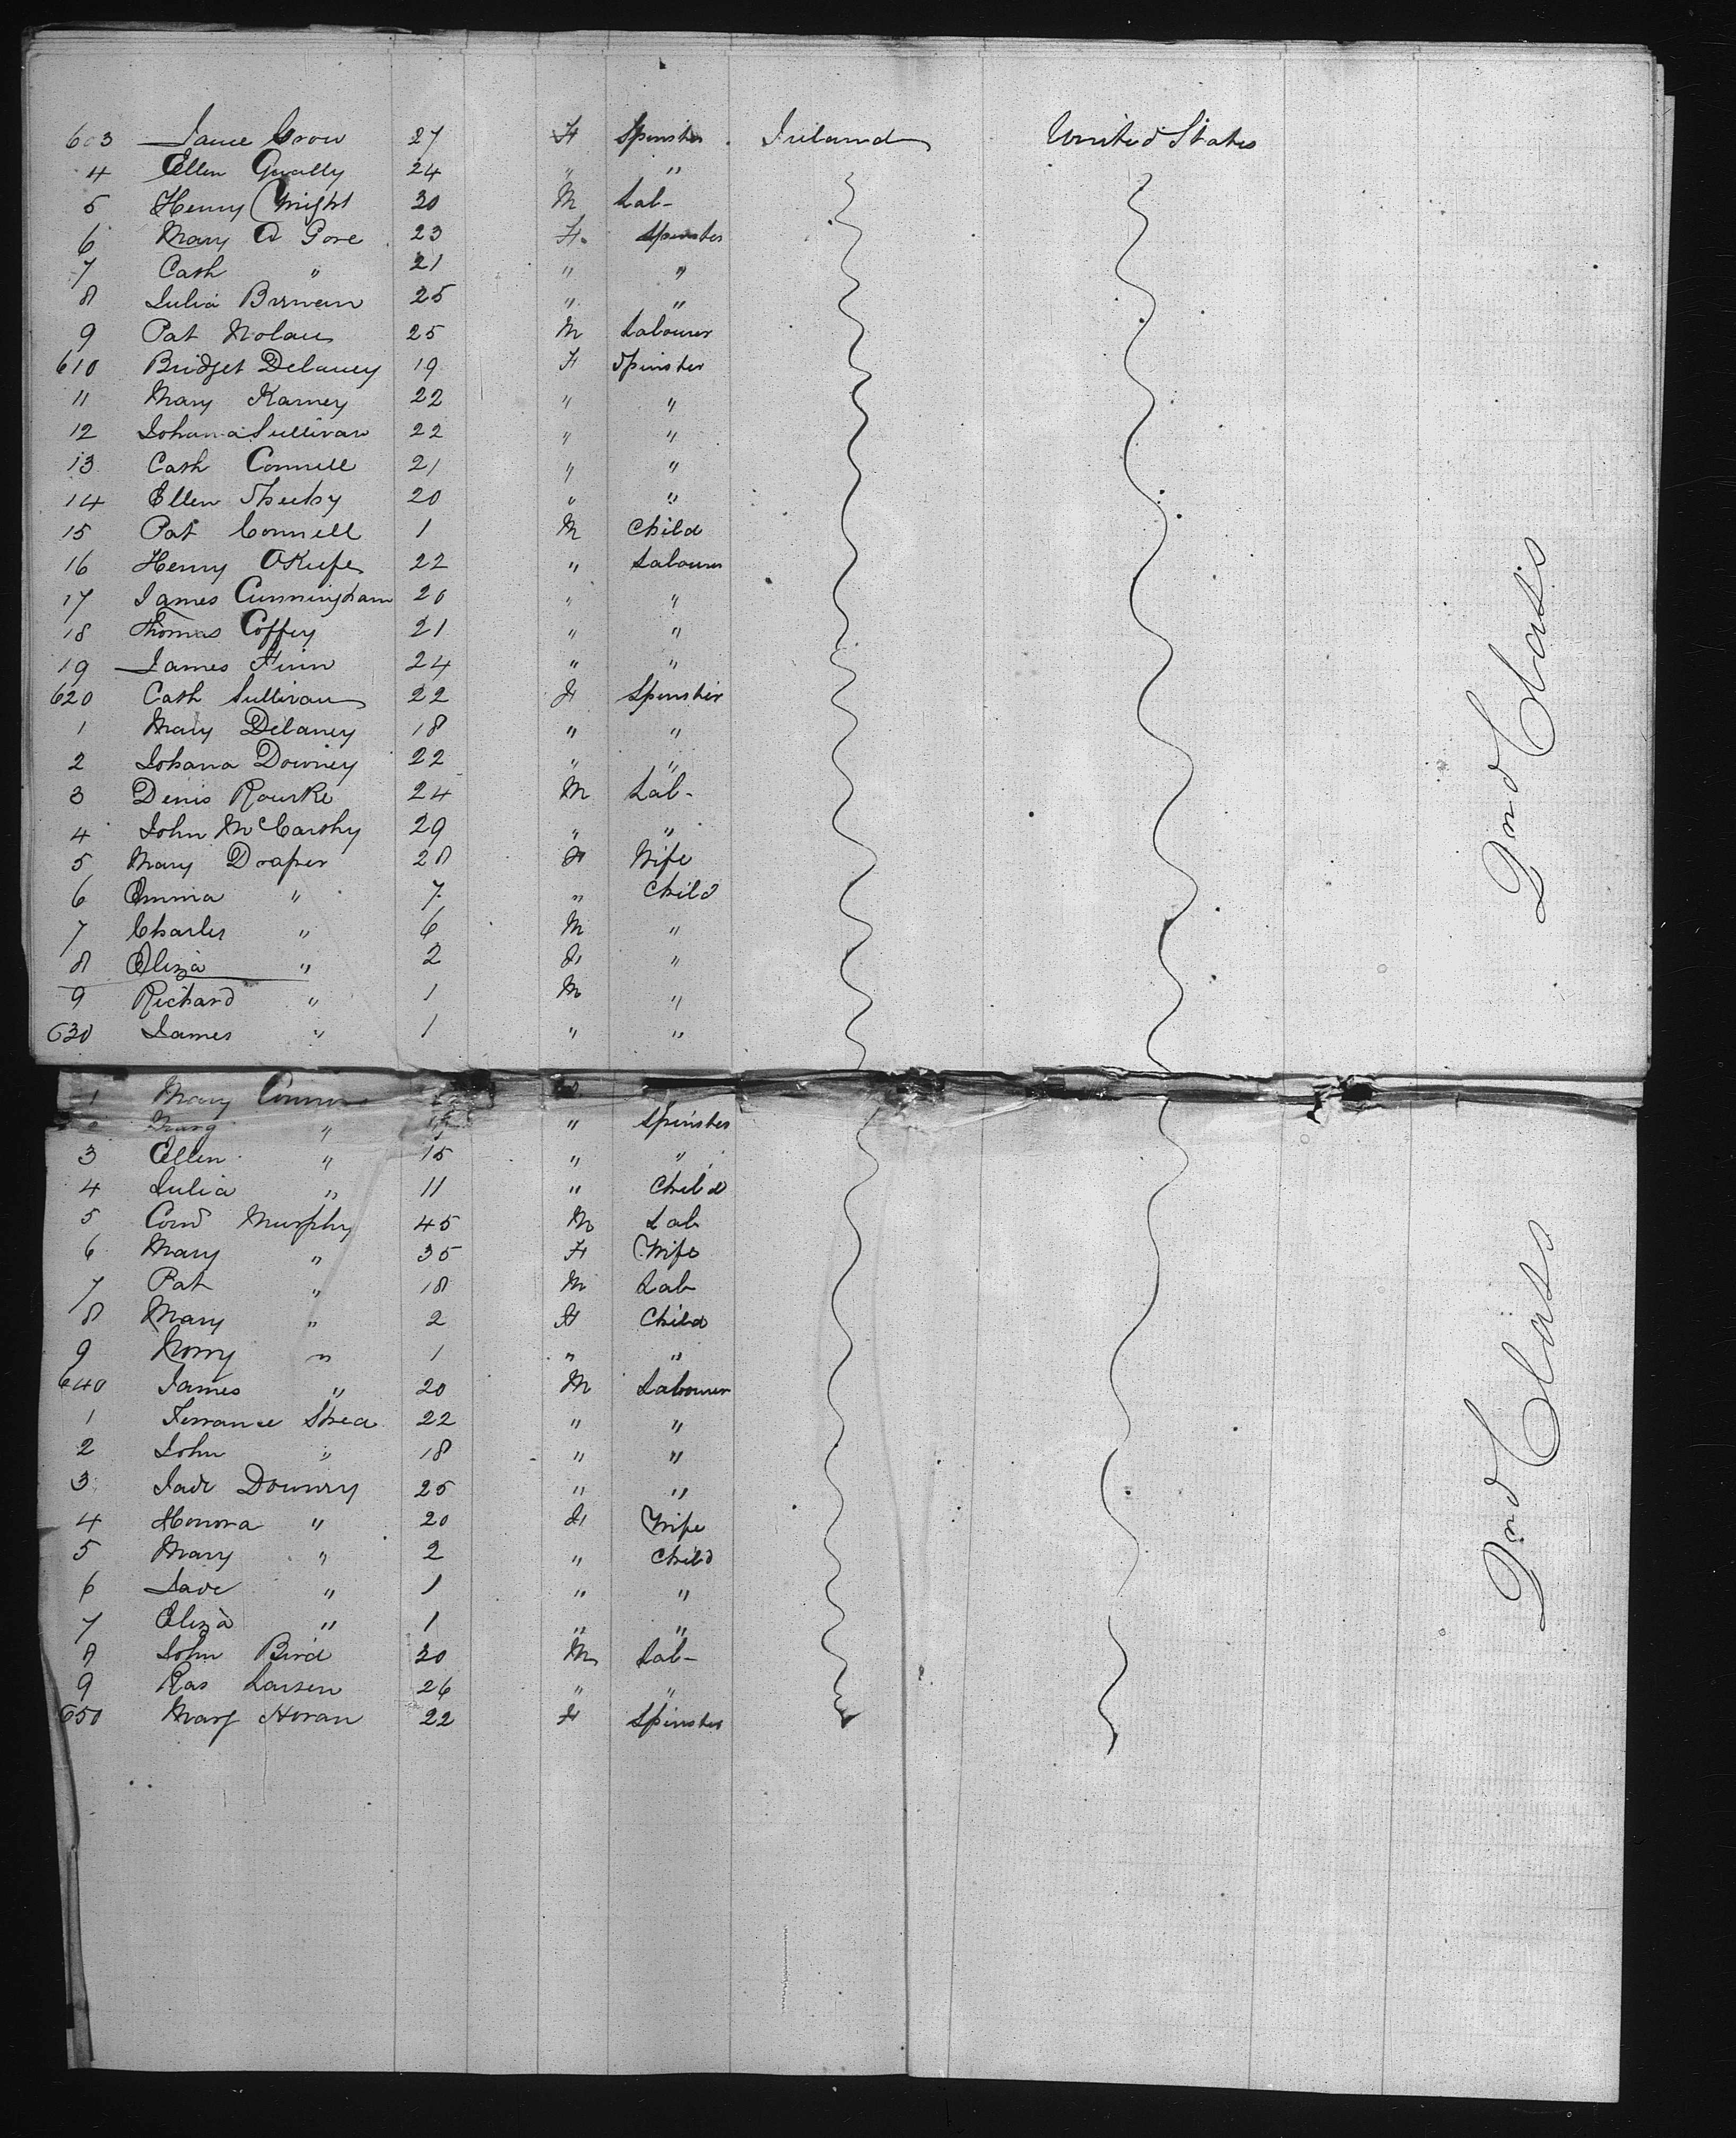 603 Jane Crow 27 F Spinster Ireland United States
4 Ellen Qually 24 " "
5 Henry Wright 30 M Lab-
6 Mary A Gore 23 F. Spinster
7 Cath " 21 " "
8 Julia Brenan 25 " "
9 Pat Nolan 25 M Labourer
610 Bridget Delaney 19 F Spinster
11 Mary Karney 22 " "
12 Johana Sullivan 22 " "
13 Cath Connell 21 " "
14 Ellen Sheehy 20 " "
15 Pat Connell 1 M Child
16 Henry OKeefe 22 " Labourer
17 James Cunningham 20 " "
18 Thomas Coffey 21 " "
19 James Finn 24 " "
620 Cath Sullivan 22 F Spinster
1 Mary Delaney 18 " "
2 Johana Downey 22 " "
3 Denis Rourke 24 M Lab-
4 John McCarthy 29 " "
5 Mary Draper 28 F Wife
6 Emma " 7 " Child
7 Charles " 6 M "
8 Eliza " 2 F "
9 Richard " 1 M "
630 James " 1 " "
1 Mary
Marg " " Spinster
3 Ellen " 15 " "
4 Julia " 11 " Child
5 Cond Murphy 45 M Lab
6 Mary " 35 F Wife
7 Pat " 18 M Lab
8 Mary " 2 F Child
9 Norry " 1 " "
640 James " 20 M Labourer
1 Terrance Shea 22 " "
2 John " 18 " "
3 Downey 25 " "
4 Honora " 20 F Wife
5 Mary " 2 " Child
6 " 1 " "
7 Eliza " 1 " "
8 John Bird 30 M Lab-
9 Ras Larsen 26 " "
650 Marg Horan 22 F Spinster
2nd Class
2nd Class